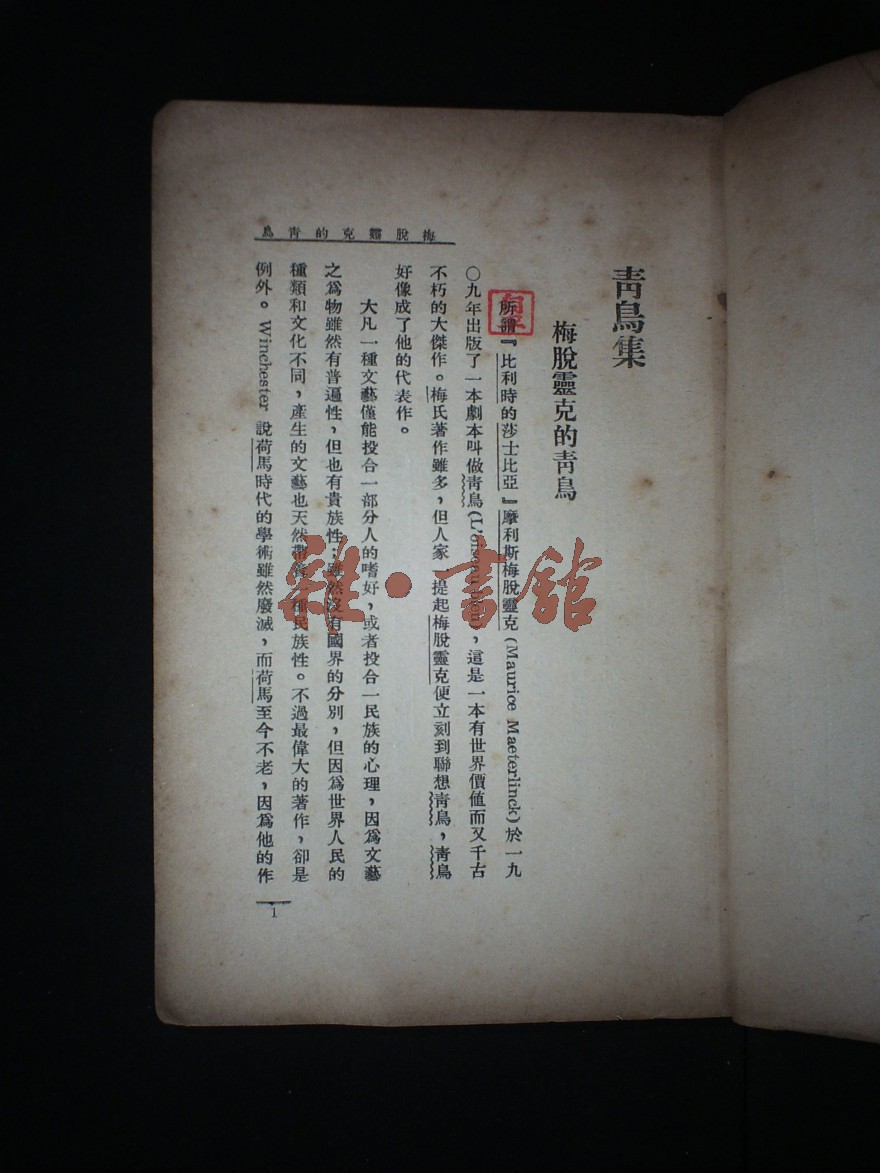 青鳥集
梅脫靈克的青鳥
所謂『比利時的莎士比亞』摩利斯梅脫靈克(Maurice Maeterlinck)於一九
〇九年出版了一本劇本叫做青鳥(L'oiseau
),這是一本有世界價值而又千古
不朽的大傑作。梅氏著作雖多,但人家一提起梅脫靈克便立刻到聯想青鳥,青鳥
好像成了他的代表作。
大凡一種文藝僅能投合一部分人的嗜好,或者投合一民族的心理,因爲文藝
之爲物雖然有普遍性,但也有貴族性;雖然沒有國界的分別,但因爲世界人民的
種類和文化不同,產生的文藝也天然帶着一種民族性。不過最偉大的著作,卻是
例外。Winchester 說荷馬時代的學術雖然廢滅,而荷馬至今不老,因爲他的作
梅脫靈克的青鳥
1
雜·書館